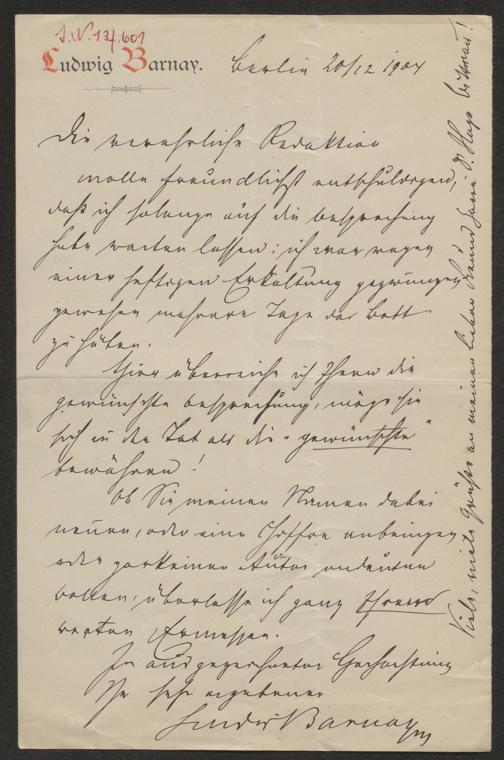 J.N. 134.601
Ludwig Barnay.
Berlin 20/12 1904
Die verehrliche Redaktion
wolle freundlichst entschuldigen,
daß ich solange auf die Besprechung
habe warten lassen: ich war wegen
einer heftigen Erkältung gezwungen
gewesen mehrere Tage das Bett
zu hüten.
Hier überreiche ich Ihnen die
gewünschte Besprechung, möge sie
sich in der Tat als die "gewünschte"
bewähren!
Ob Sie meinen Namen dabei
nennen, oder eine Chiffre anbringen
oder gar keinen Autor andeuten
wollen, überlasse ich ganz Ihrem
werten Ermessen.
In ausgezeichneter Hochachtung
Ihr sehr ergebener
Ludwig Barnay
Viele, viele Grüße an meinen lieben Freund Herrn Dr.